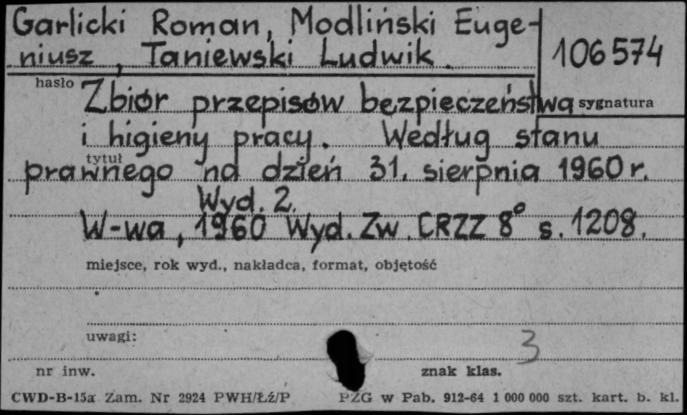 Garlicki Roman, Modliński Euge-
niusz, Taniewski Ludwik.
106574
hasło
Zbiór przepisów bezpieczeństwa sygnatura
i higieny pracy. Według stanu
tytuł
prawnego na dzień 31. sierpnia 1960 r.
Wyd. 2.
W-wa, 1960 Wyd. Zw. CRZZ 8° s. 1208.
miejsce, rok wyd., nakładca, format, objętość
uwagi:
3
nr inw. znak klas.
CWD-B-15a Zam. Nr 2924 PWH/Łź/P PZG w Pab. 912-64 1 000 000 szt. kart. b. kl.